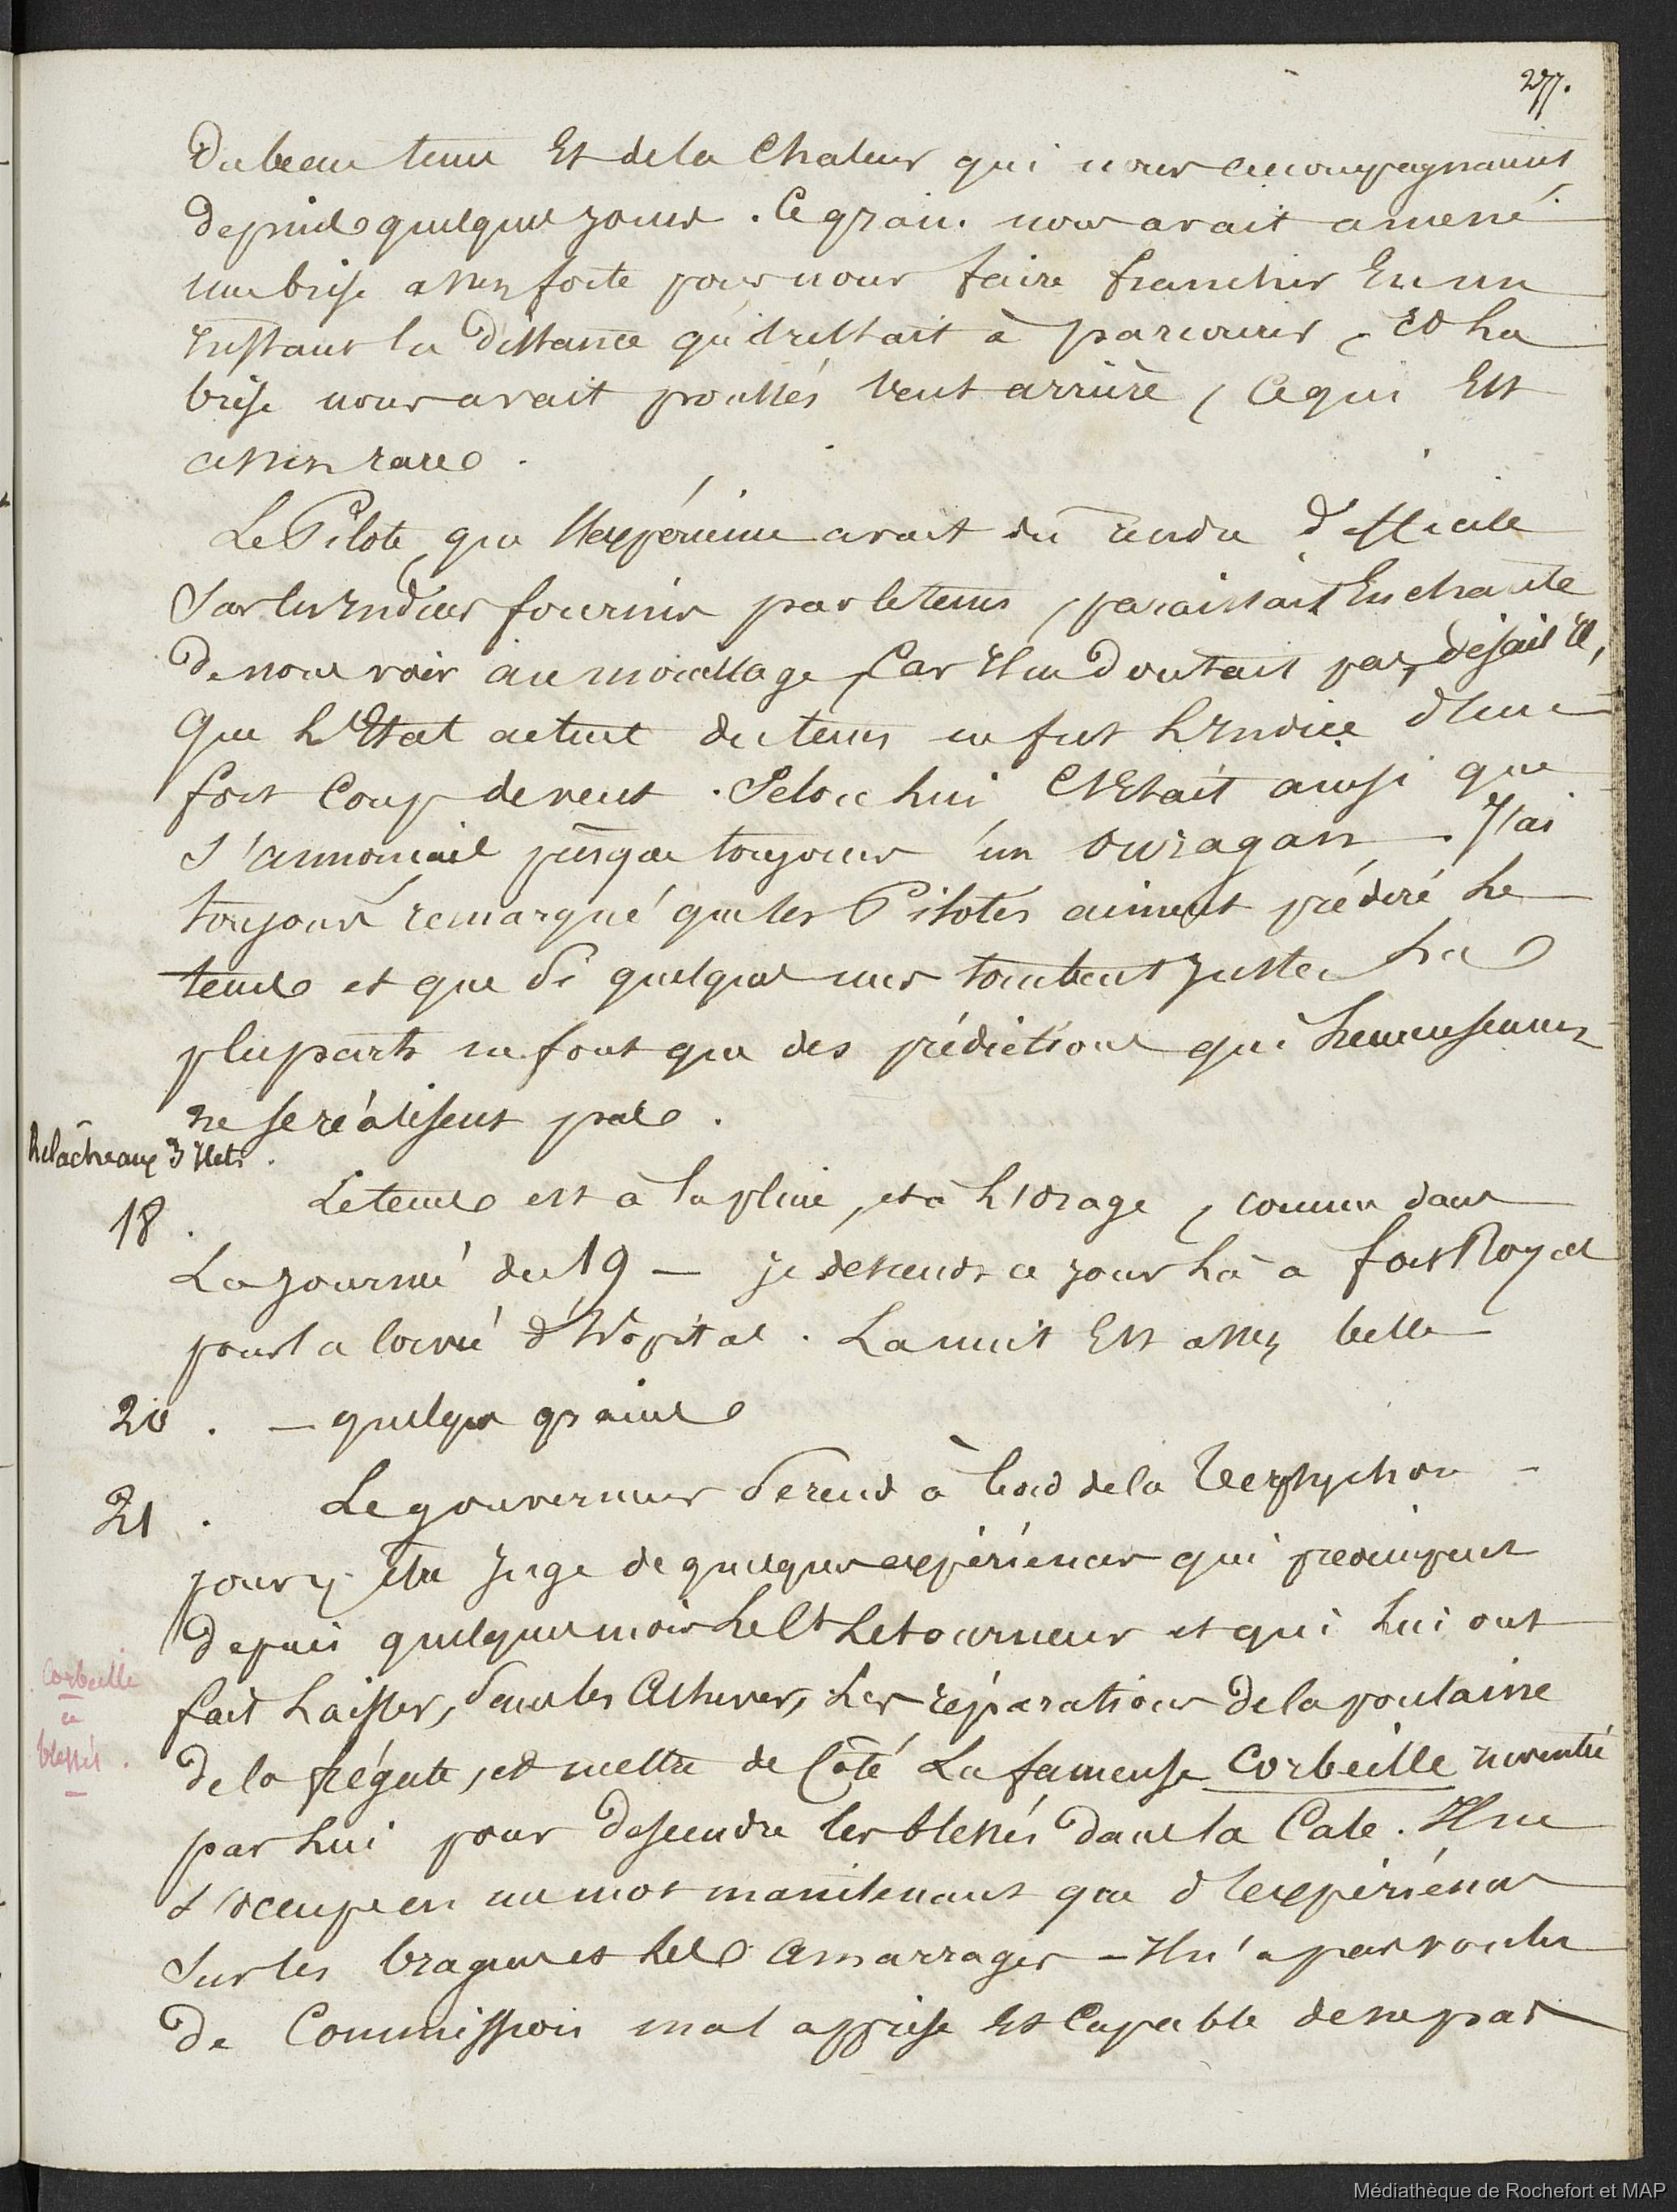 277.
Du beau tems Et de la Chaleur qui nous accompagnaient
depuis quelques jours. Ce grain nous avait amené
une brise assez forte pour nous faire franchir En un
instant la distance qu'il restait à parcourir, Et la
brise nous avait poussés vent arrière, Ce qui Est
assez rare.
Le Pilote, que l'expérience avait dû rendre difficile
Sur les indices fournis par le tems, paraissait Enchanté
De nous voir au mouillage, Car il ne doutait pas, disait il,
que l'Etat actuel du tems ne fut l'indice d'un
fort Coup de vent. Selon lui, C'Etait ainsi que
s'annonçait presque toujours un ouragan. J'ai
toujours remarqué que les Pilotes aiment prédire le
tems et que Si quelques uns tombent juste, La
plupart ne font que des prédictions qui heureusement
ne se réalisent pas.
Relâche aux 3 Ilets.
18. Le tems est à la pluie, et à l'orage, comme dans
La journée du 19 — je descends ce jour là à fort Royal
pour la corvée d'hôpital. La nuit Est assez belle
20. — quelques grains
21. Le gouverneur Se rend à bord de la Terpsychore
pour y être juge de quelques expériences qui préoccupent
depuis quelques mois le Ct Letourneur et qui lui ont
fait laisser, Sans les achever, les réparations de la poulaine
de la frégate, et mettre de Côté La fameuse Corbeille inventée
Corbeille
a
blessés.
par lui pour descendre les blessés dans la Cale. Il ne
s'occupe en un mot maintenant que d'expériences
Sur les bragues et les amarrages — Il n'a pas voulu
De Commission mal apprise Et Capable de ne pas
Médiathèque de Rochefort et MAP